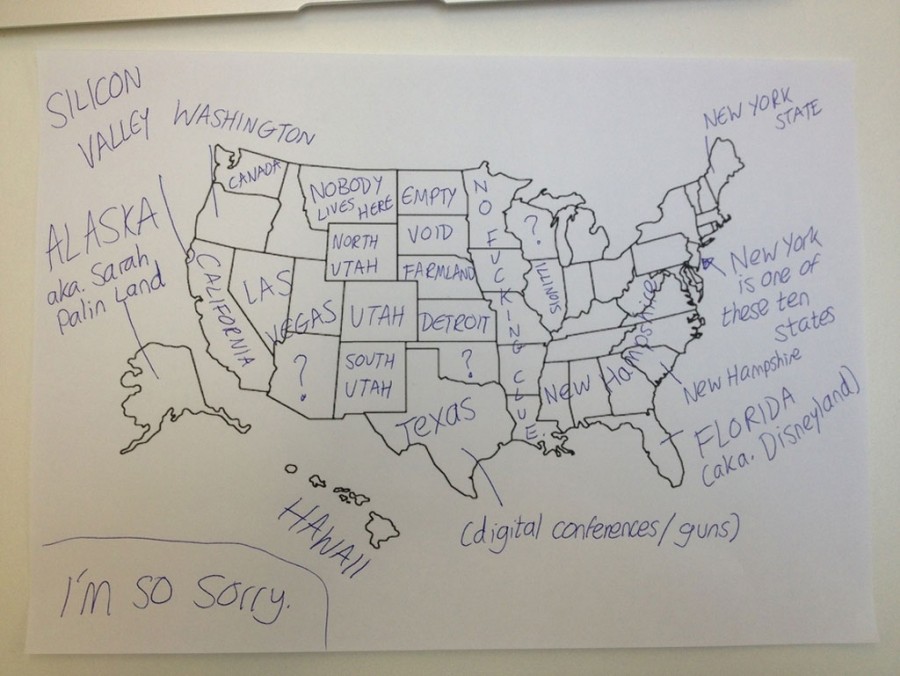 SILICON
VALLEY
WASHINGTON
NEW YORK
STATE
CANADA
NOBODY
LIVES HERE
EMPTY
NO FUCKING CLUE.
?
ALASKA
aka. Sarah
Palin Land
NORTH
UTAH
VOID
FARMLAND
CALIFORNIA
LAS
VEGAS
UTAH
DETROIT
ILLINOIS
NEW YORK
is one of
these ten
states
?
SOUTH
UTAH
?
Texas
NEW Hampshire
New Hampshire
FLORIDA
(aka. Disneyland)
HAWAII
(digital conferences/guns)
I'm so sorry.